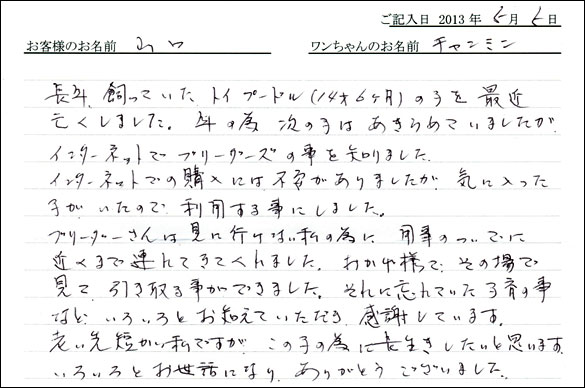 ご記入日 2013年 5月 5日
お客様のお名前 山口 ワンちゃんのお名前 チャンミン
長年、飼っていた トイプードル(14才6ヶ月)の子を 最近
亡くしました。年の為 次の子は あきらめていましたが
インターネットで ブリーダーズの事を 知りました。
インターネットでの購入には 不安がありましたが、気に入った
子が いたので 利用する事にしました。
ブリーダーさんは 見に行けない私の為に 用事のついでに
近くまで 連れてきてくれました。おかげ様で その場で
見て、引き取る事ができました。それに忘れていた 子育の事
など いろいろと お知えていただき 感謝しています。
老い先短かい私ですが この子の為に長生きしたいと思います。
いろいろと お世話になり、ありがとう ございました。